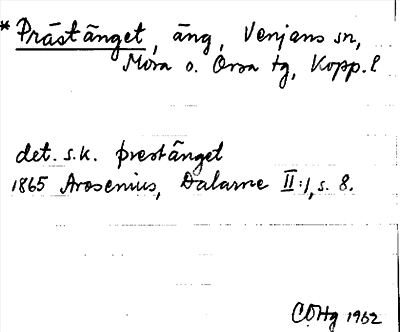 * Prästänget, äng, Venjans sn,
Mora o. Orsa tg, Kopp. l
det. s.k. prestänget
1865 Arosenius, Dalarne II:1, s. 8.
1962